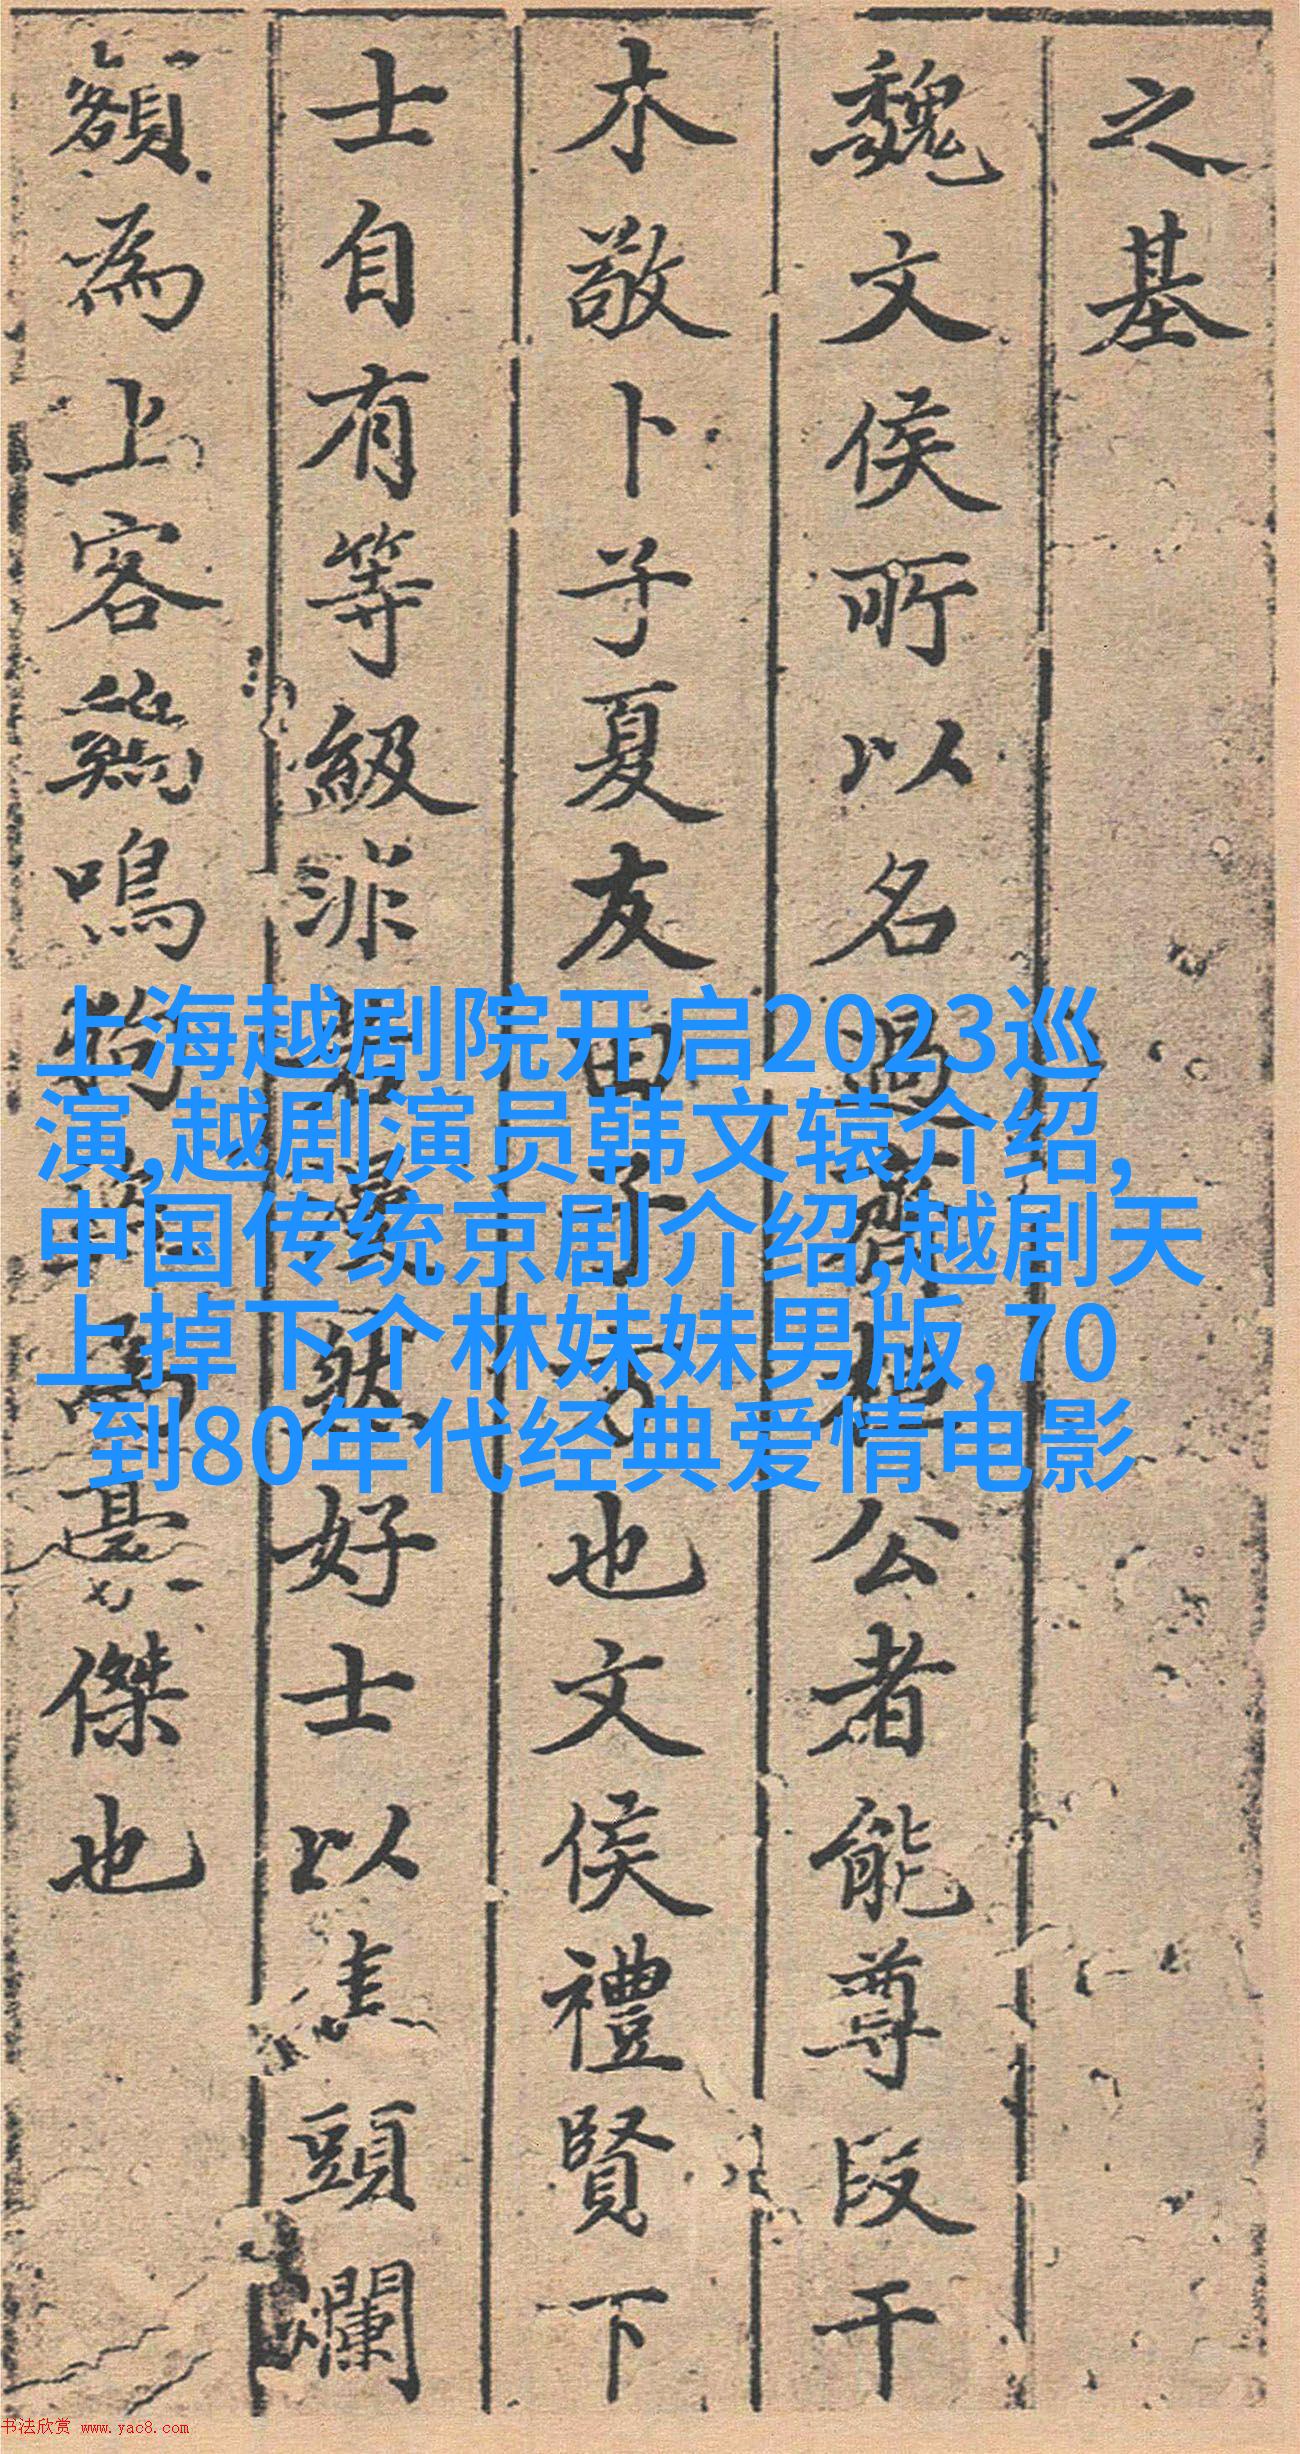 之基
魏文侯所以名過齊公者能尊段干
木敬卜子夏友田子方也文侯禮賢下
士自有等級非然好士以焦頭爛
額為上客鷄鳴狗為豪傑也
上海越剧院开启2023巡
演,越剧演员韩文辕介绍,
中国传统京剧介绍,越剧天
上掉下个林妹妹男版,70
到80年代经典爱情电影
书法欣赏 www.yac8.com